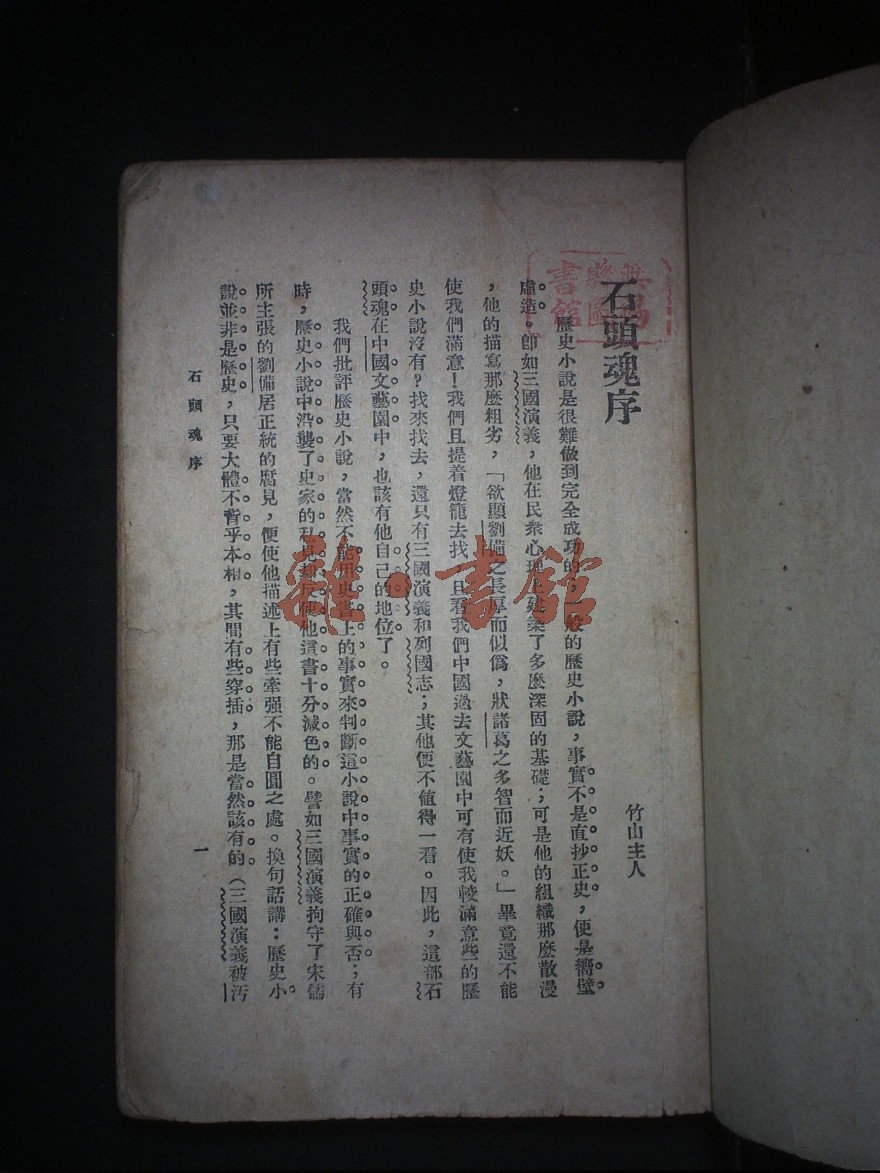 石頭魂序
竹山主人
歷史小說是很難做到完全成功的，一般的歷史小說，事實不是直抄正史，便是嚮壁
虛造。卽如三國演義，他在民衆心理上建築了多麽深固的基礎；可是他的組織那麽散漫
，他的描寫那麽粗劣，「欲顯劉備之長厚而似僞，狀諸葛之多智而近妖。」畢竟還不能
使我們滿意！我們且提着燈籠去找，且看我們中國過去文藝園中可有使我較滿意些的歷
史小說沒有？找來找去，還只有三國演義和列國志；其他便不値得一看。因此，這部石
頭魂在中國文藝園中，也該有他自己的地位了。
我們批評歷史小說，當然不能用史書上的事實來判斷這小說中事實的正確與否；有
時，歷史小說中沿襲了史家的私見却反使他這書十分減色的。譬如三國演義拘守了宋儒
所主張的劉備居正統的腐見，便使他描述上有些牽强不能自圓之處。換句話講：歷史小
說並非是歷史，只要大體不背乎本相，其間有些穿插，那是當然該有的（三國演義被汚
石頭魂序
一
書館
雜·書館